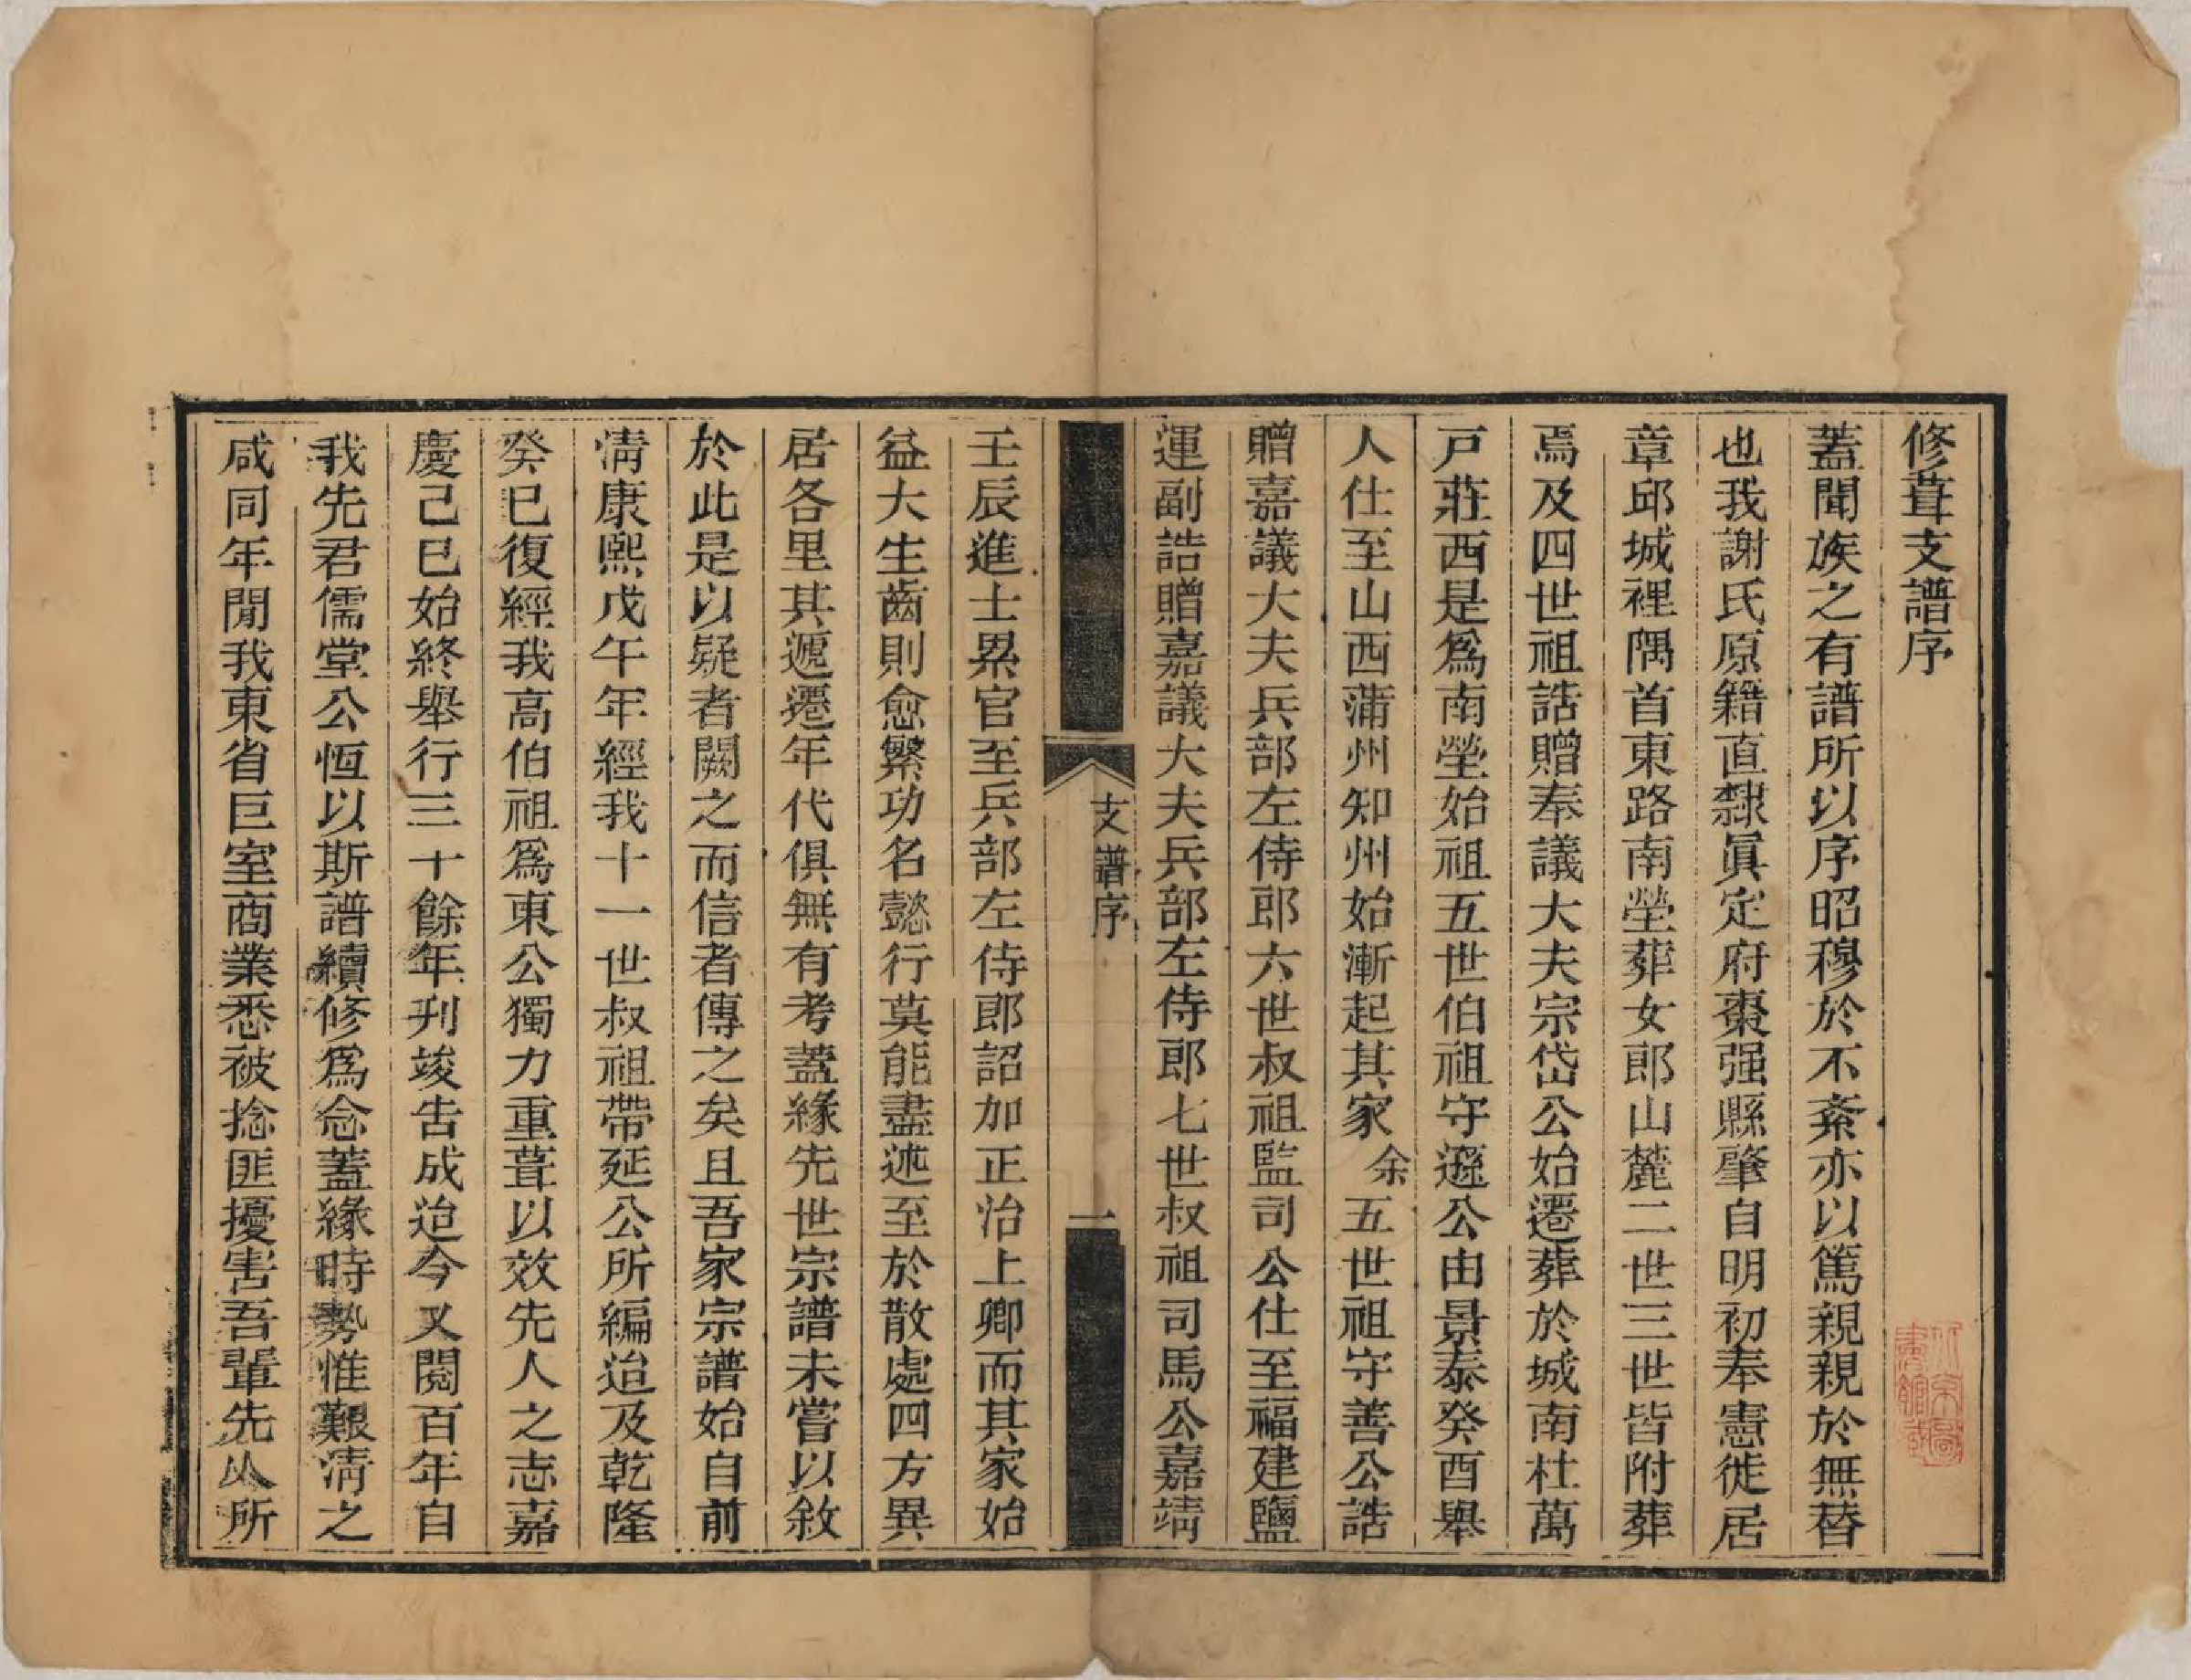 修葺支譜序
蓋聞族之有譜所以序昭穆於不紊亦以篤親親於無替
也我謝氏原籍直隸眞定府棗强縣肇自明初奉憲徙居
章邱城裡隅首東路南塋葬女郎山麓二世三世皆附葬
焉及四世祖誥贈奉議大夫宗岱公始遷葬於城南杜萬
戸莊西是爲南塋始祖五世伯祖守遜公由景泰癸酉舉
人仕至山西蒲州知州始漸起其家余五世祖守善公誥
贈嘉議大夫兵部左侍郎六世叔祖監司公仕至福建鹽
運副誥贈嘉議大夫兵部左侍郎七世叔祖司馬公嘉靖
支譜序
一
壬辰進士累官至兵部左侍郎詔加正治上卿而其家始
益大生齒則愈繁功名懿行莫能盡述至於散處四方異
居各里其遞遷年代俱無有考蓋緣先世宗譜未嘗以敘
於此是以疑者闕之而信者傳之矣且吾家宗譜始自前
清康熙戊午年經我十一世叔祖帶延公所編迨及乾隆
癸巳復經我高伯祖爲東公獨力重葺以效先人之志嘉
慶己巳始終舉行三十餘年刋竣告成迨今又閱百年自
我先君儒堂公恆以斯譜續修爲念蓋緣時勢惟艱清之
咸同年間我東省巨室商業悉被捻匪擾害吾輩先人所